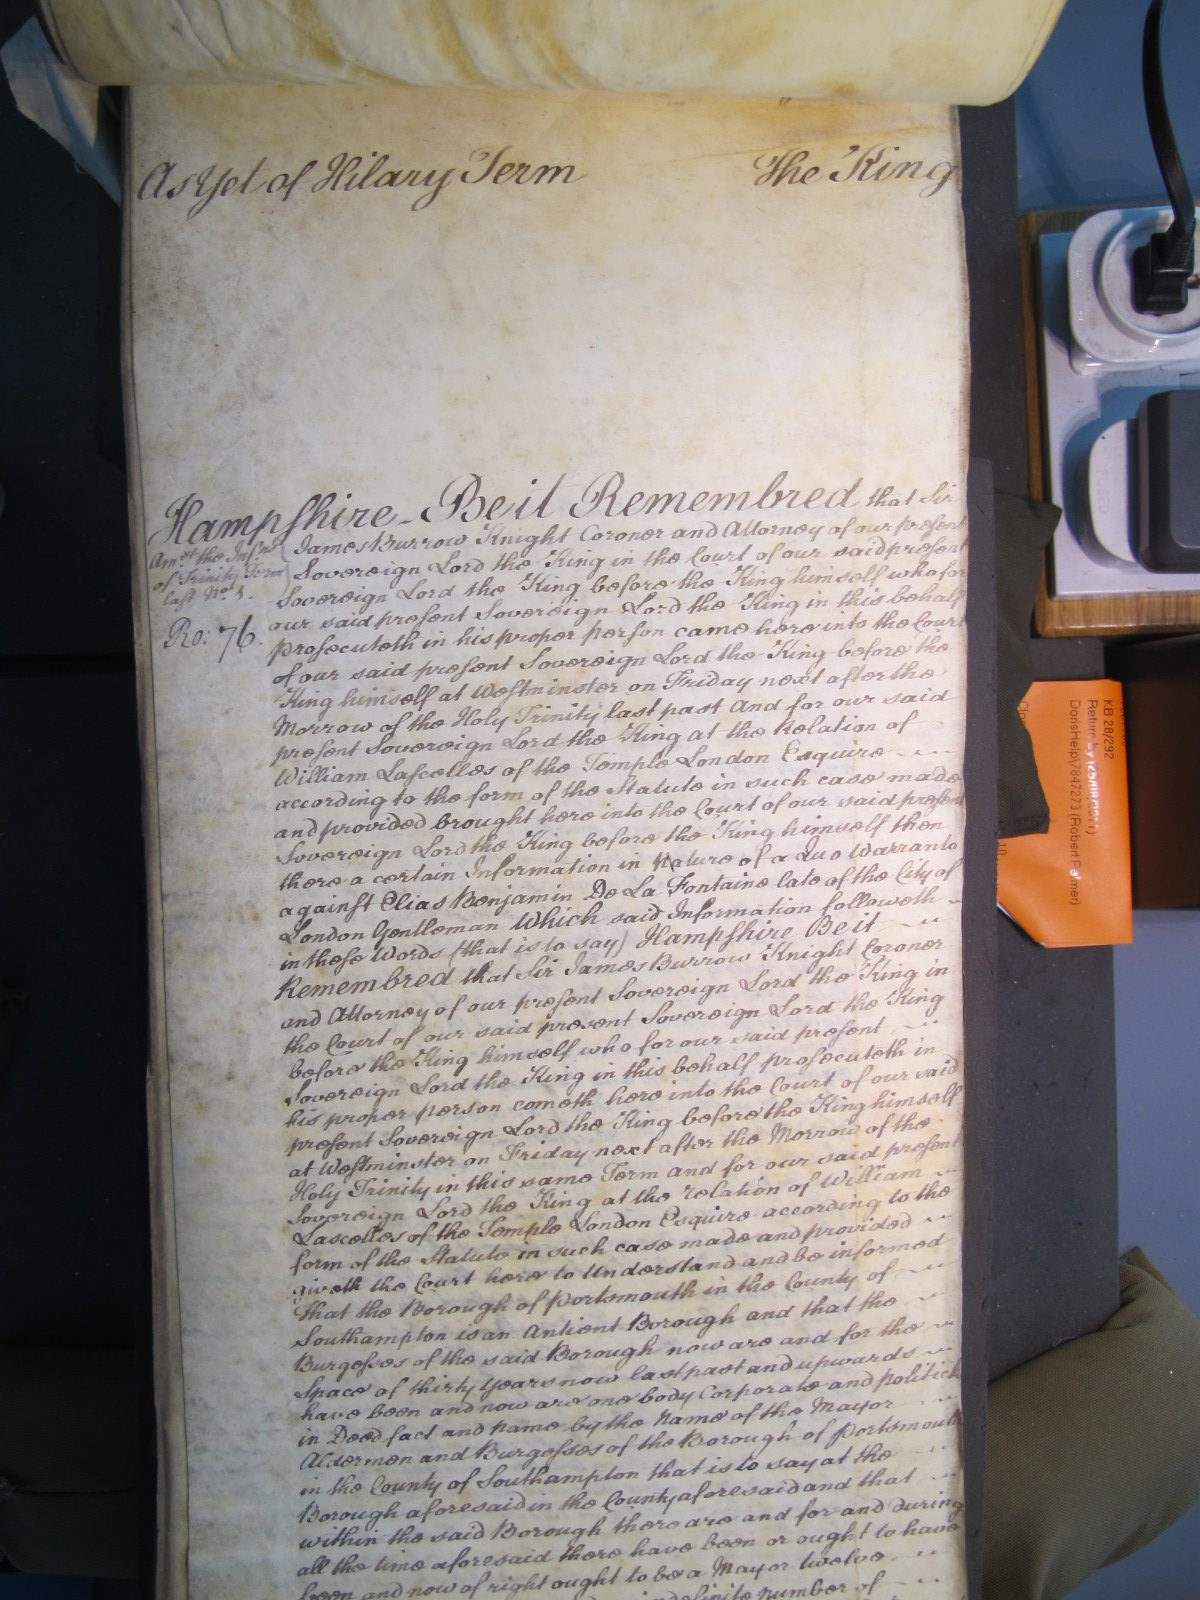 As Yet of Hilary Term The King
Hampshire - Be it Remembred that Sir
Amst. the Inform
of Trinity Term
last No. 1.
Ro: 76.
James Burrow Knight Coroner and Attorney of our present
Sovereign Lord the King in the Court of our said present
Sovereign Lord the King before the King himself who for
our said present Sovereign Lord the King in this behalf
prosecuteth in his proper person came here into the Court
of our said present Sovereign Lord the King before the
King himself at Westminster on Friday next after the
Morrow of the Holy Trinity last past And for our said
present Sovereign Lord the King at the Relation of
William Lascelles of the Temple London Esquire
according to the form of the Statute in such case made
and provided brought here into the Court of our said present
Sovereign Lord the King before the King himself then
there a certain Information in Nature of a Quo Warranto
against Elias Benjamin De La Fontaine late of the City of
London Gentleman Which said Information followeth
in these Words (that is to say) Hampshire Be it
Remembred that Sir James Burrow Knight Coroner
and Attorney of our present Sovereign Lord the King in
the Court of our said present Sovereign Lord the King
before the King himself who for our said present
Sovereign Lord the King in this behalf prosecuteth in
his proper person cometh here into the Court of our said
present Sovereign Lord the King before the King himself
at Westminster on Friday next after the Morrow of the
Holy Trinity in this same Term and for our said present
Sovereign Lord the King at the relation of William
Lascelles of the Temple London Esquire according to the
form of the Statute in such case made and provided
giveth the Court here to Understand and be informed
That the Borough of Portsmouth in the County of
Southampton is an Antient Borough and that the
Burgesses of the said Borough now are and for the
Space of thirty Years now last past and upwards
have been and now are one body Corporate and politick
in Deed fact and name by the Name of the Mayor
Aldermen and Burgesses of the Borough of Portsmouth
in the County of Southampton that is to say at the
Borough aforesaid in the County aforesaid and that
within the said Borough there are and for and during
all the time aforesaid there have been or ought to have
been and now of right ought to be a Mayor twelve
indefinite number of
KB 28/292
Return by (25/08/2011)
DorisHelp\7847273 (Robert Palmer)